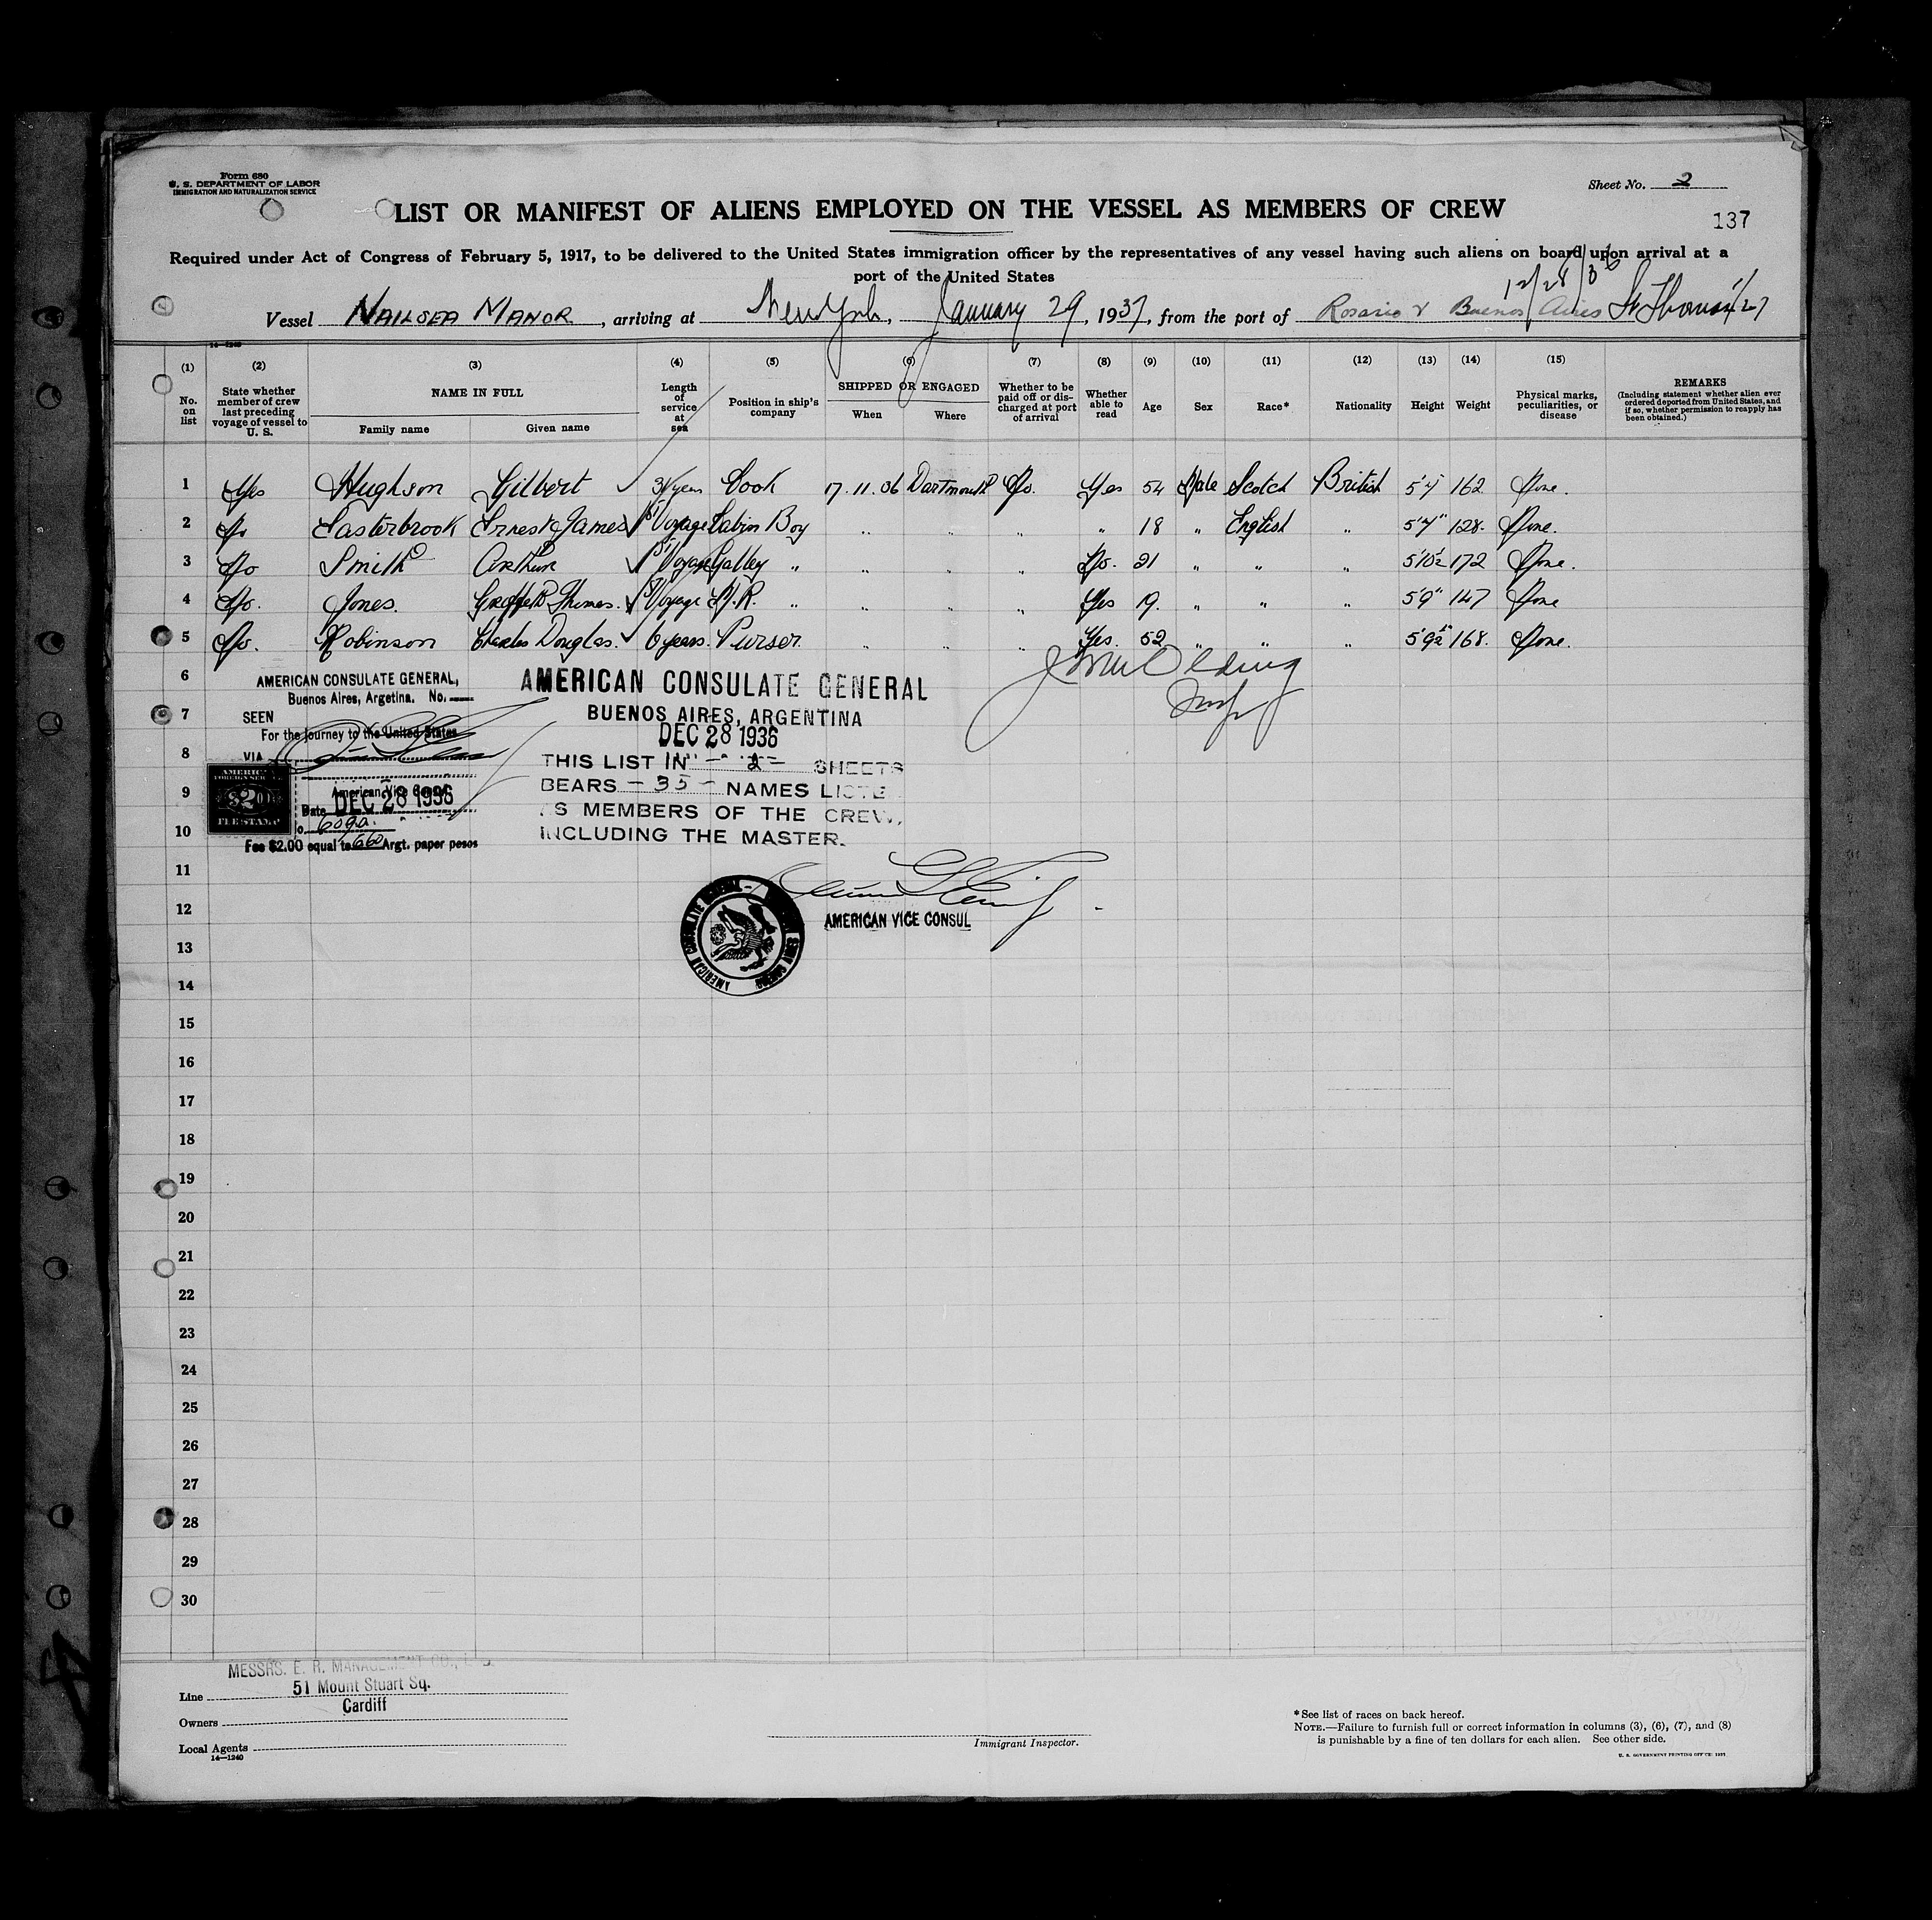 Form 680
U. S. DEPARTMENT OF LABOR
IMMIGRATION AND NATURALIZATION SERVICE
Sheet No. 2
137
LIST OR MANIFEST OF ALIENS EMPLOYED ON THE VESSEL AS MEMBERS OF CREW
Required under Act of Congress of February 5, 1917, to be delivered to the United States immigration officer by the representatives of any vessel having such aliens on board upon arrival at a
port of the United States
12/28/36
Vessel NAILSEA MANOR, arriving at New York, January 29, 1937, from the port of Rosario & Buenos Aires St Thomas 1/27
14-1240
(1) (2) (3) (4) (5) (6) (7) (8) (9) (10) (11) (12) (13) (14) (15)
No. on list
State whether member of crew last preceding voyage of vessel to U. S.
NAME IN FULL
Family name
Given name
Length of service at sea
Position in ship's company
SHIPPED OR ENGAGED
When
Where
Whether to be paid off or discharged at port of arrival
Whether able to read
Age
Sex
Race*
Nationality
Height
Weight
Physical marks, peculiarities, or disease
REMARKS
(Including statement whether alien ever ordered deported from United States, and if so, whether permission to reapply has been obtained.)
1 Yes Hughson Gilbert 31 years Cook 17.11.36 Dartmouth No. Yes 54 Male Scotch British 5'7" 162 None.
2 No Easterbrook Ernest James 1st Voyage Cabin Boy " " " " 18 " English " 5'7" 128. None.
3 No Smith Arthur 1st Voyage Galley " " " " No. 21 " " " 5'10½ 172 None.
4 No. Jones. Griffith Thomas. 1st Voyage M.R. " " " " Yes 19. " " " 5'9" 147 None
5 No. Robinson Charles Douglas. 6 years. Purser. " " " Yes. 52 " " " 5'9½" 168. None.
6
7
8
9
10
11
12
13
14
15
16
17
18
19
20
21
22
23
24
25
26
27
28
29
30
AMERICAN CONSULATE GENERAL,
Buenos Aires, Argetina. No.
SEEN
For the journey to the United States
VIA
American Vice Consul
Date DEC 28 1936
Fee $2.00 equal to Argt. paper pesos
AMERICAN
FOREIGN SERVICE
$2.00
FEE STAMP
AMERICAN CONSULATE GENERAL
BUENOS AIRES, ARGENTINA
DEC 28 1936
THIS LIST IN - 2 - SHEETS
BEARS - 35 - NAMES LISTED
AS MEMBERS OF THE CREW,
INCLUDING THE MASTER.
AMERICAN VICE CONSUL
AMERICAN CONSULATE GENERAL
MESSRS. E. R. MANAGEMENT CO., LTD.
51 Mount Stuart Sq.
Cardiff
Line
Owners
Local Agents
14-1240
Immigrant Inspector.
*See list of races on back hereof.
NOTE.—Failure to furnish full or correct information in columns (3), (6), (7), and (8)
is punishable by a fine of ten dollars for each alien. See other side.